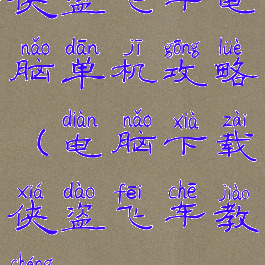 侠盗飞车电
nǎo dān jī gōng lüè
脑单机攻略
diàn nǎo xià zǎi
（电脑下载
xiá dào fēi chē jiào
侠盗飞车教
chéng